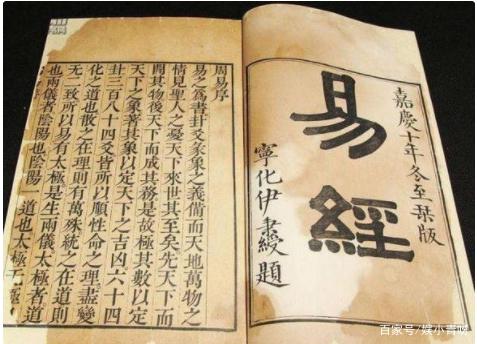 嘉慶十年冬至栞版
易經
寧化伊秉綬題
周易序
易之爲書卦爻彖象之義備而天地萬物之
情見聖人之憂天下來世其至矣先天下而
開其物後天下而成其務是故極其數以定
天下之象著其象以定天下之吉凶六十四
卦三百八十四爻皆所以順性命之理盡變
化之道也散之在理則有萬殊統之在道則
无二致所以易有太極是生兩儀太極者道
也兩儀者陰陽也陰陽一道也太極无極
百家号/娱小青